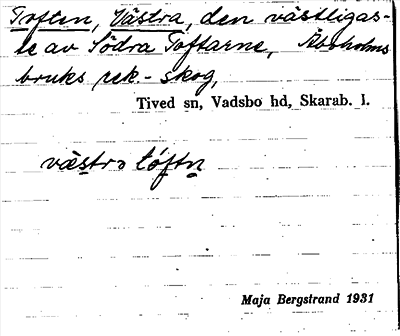 Toften, Västra, den västligas-
te av Södra Toftarne, Åboholms
bruks rek-skog,
Tived sn, Vadsbo hd, Skarab. l.
væstrə tóftn̥
Maja Bergstrand 1931